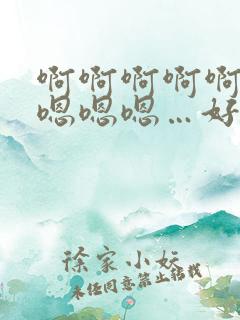 啊啊啊啊啊
嗯嗯嗯…好
徐家小妖
未经同意禁止转载